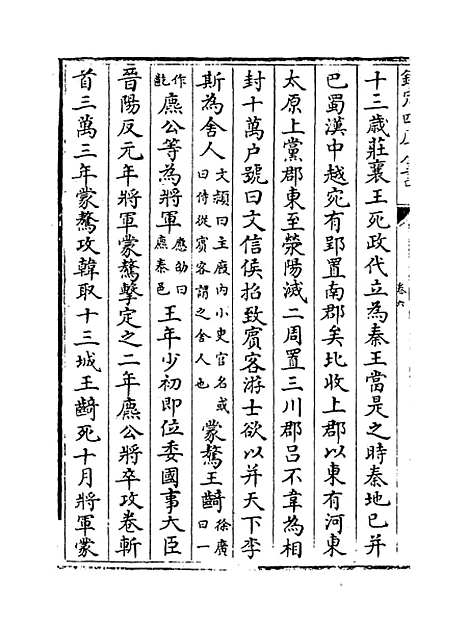 欽定四庫全書
卷六
十三歲莊襄王死政代立為秦王當是之時秦地已并
巴蜀漢中越宛有郢置南郡矣北收上郡以東有河東
太原上黨郡東至滎陽滅二周置三川郡吕不韋為相
封十萬户號曰文信侯招致賓客游士欲以并天下李
斯為舍人文穎曰主廄内小吏官名或曰侍從賓客謂之舍人也蒙驁王齮徐廣曰一
作齕麃公等為將軍應劭曰麃秦邑王年少初即位委國事大臣
晉陽反元年將軍蒙驁擊定之二年麃公將卒攻卷斬
首三萬三年蒙驁攻韓取十三城王齮死十月將軍蒙